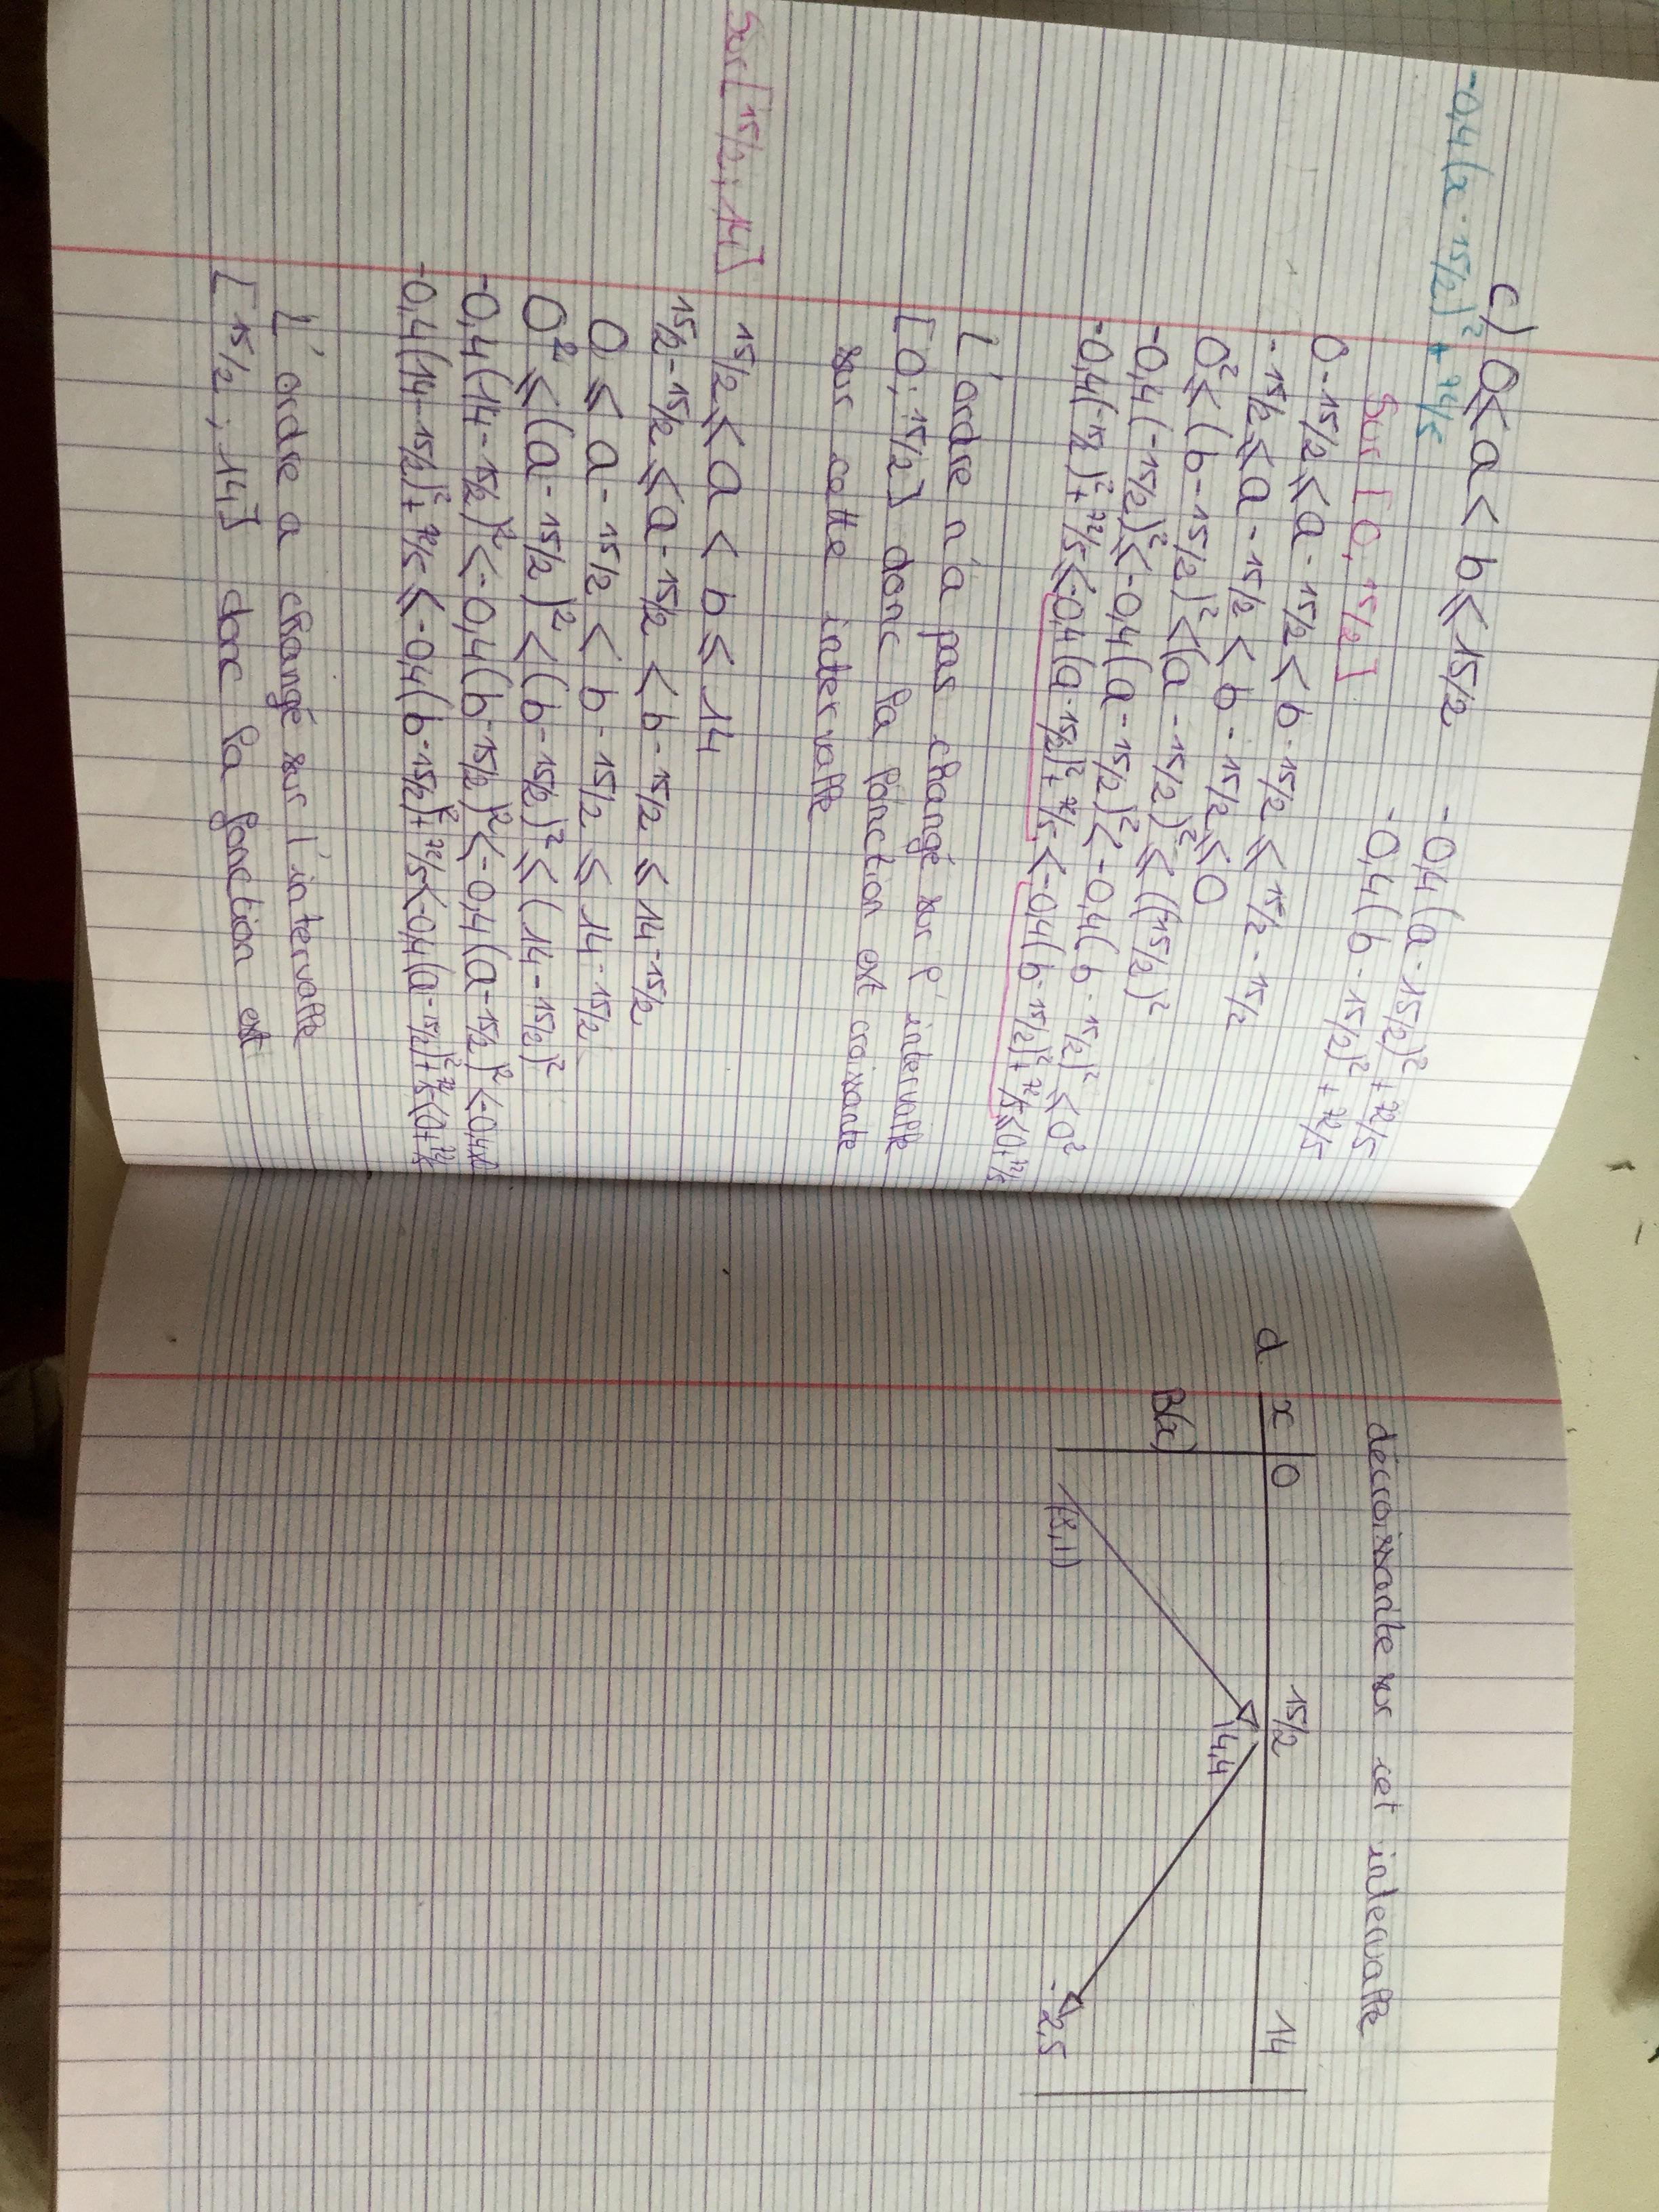 c) 0 ⩽ a < b ⩽ 15/2
-0,4 (a - 15/2)² + 72/5
-0,4 (x - 15/2)² + 72/5
-0,4 (b - 15/2)² + 72/5
Sur [0; 15/2]
0 - 15/2 ⩽ a - 15/2 < b - 15/2 ⩽ 15/2 - 15/2
-15/2 ⩽ a - 15/2 < b - 15/2 ⩽ 0
0² ⩽ (b - 15/2)² < (a - 15/2)² ⩽ ((-15/2)²
-0,4 (-15/2)² ⩽ -0,4 (a - 15/2)² < -0,4 (b - 15/2)² ⩽ 0²
-0,4 (-15/2)² + 72/5 ⩽ -0,4 (a - 15/2)² + 72/5 < -0,4 (b - 15/2)² + 72/5 ⩽ 0 + 72/5
L'ordre n'a pas changé sur l'intervalle
[0; 15/2] donc la fonction est croissante
sur cette intervalle
Sur [15/2; 14]
15/2 ⩽ a < b ⩽ 14
15/2 - 15/2 ⩽ a - 15/2 < b - 15/2 ⩽ 14 - 15/2
0 ⩽ a - 15/2 < b - 15/2 ⩽ 14 - 15/2
0² ⩽ (a - 15/2)² < (b - 15/2)² ⩽ (14 - 15/2)²
-0,4 (14 - 15/2)² < -0,4 (b - 15/2)² < -0,4 (a - 15/2)² < -0,4
-0,4 (14 - 15/2)² + 72/5 ⩽ -0,4 (b - 15/2)² + 72/5 < -0,4 (a - 15/2)² + 72/5 ⩽ 0 + 72/5
L'ordre a changé sur l'intervalle
[15/2; 14] donc la fonction est
décroissante sur cet intervalle
d
x 0 15/2 14
B(x) 14,4
-2,5